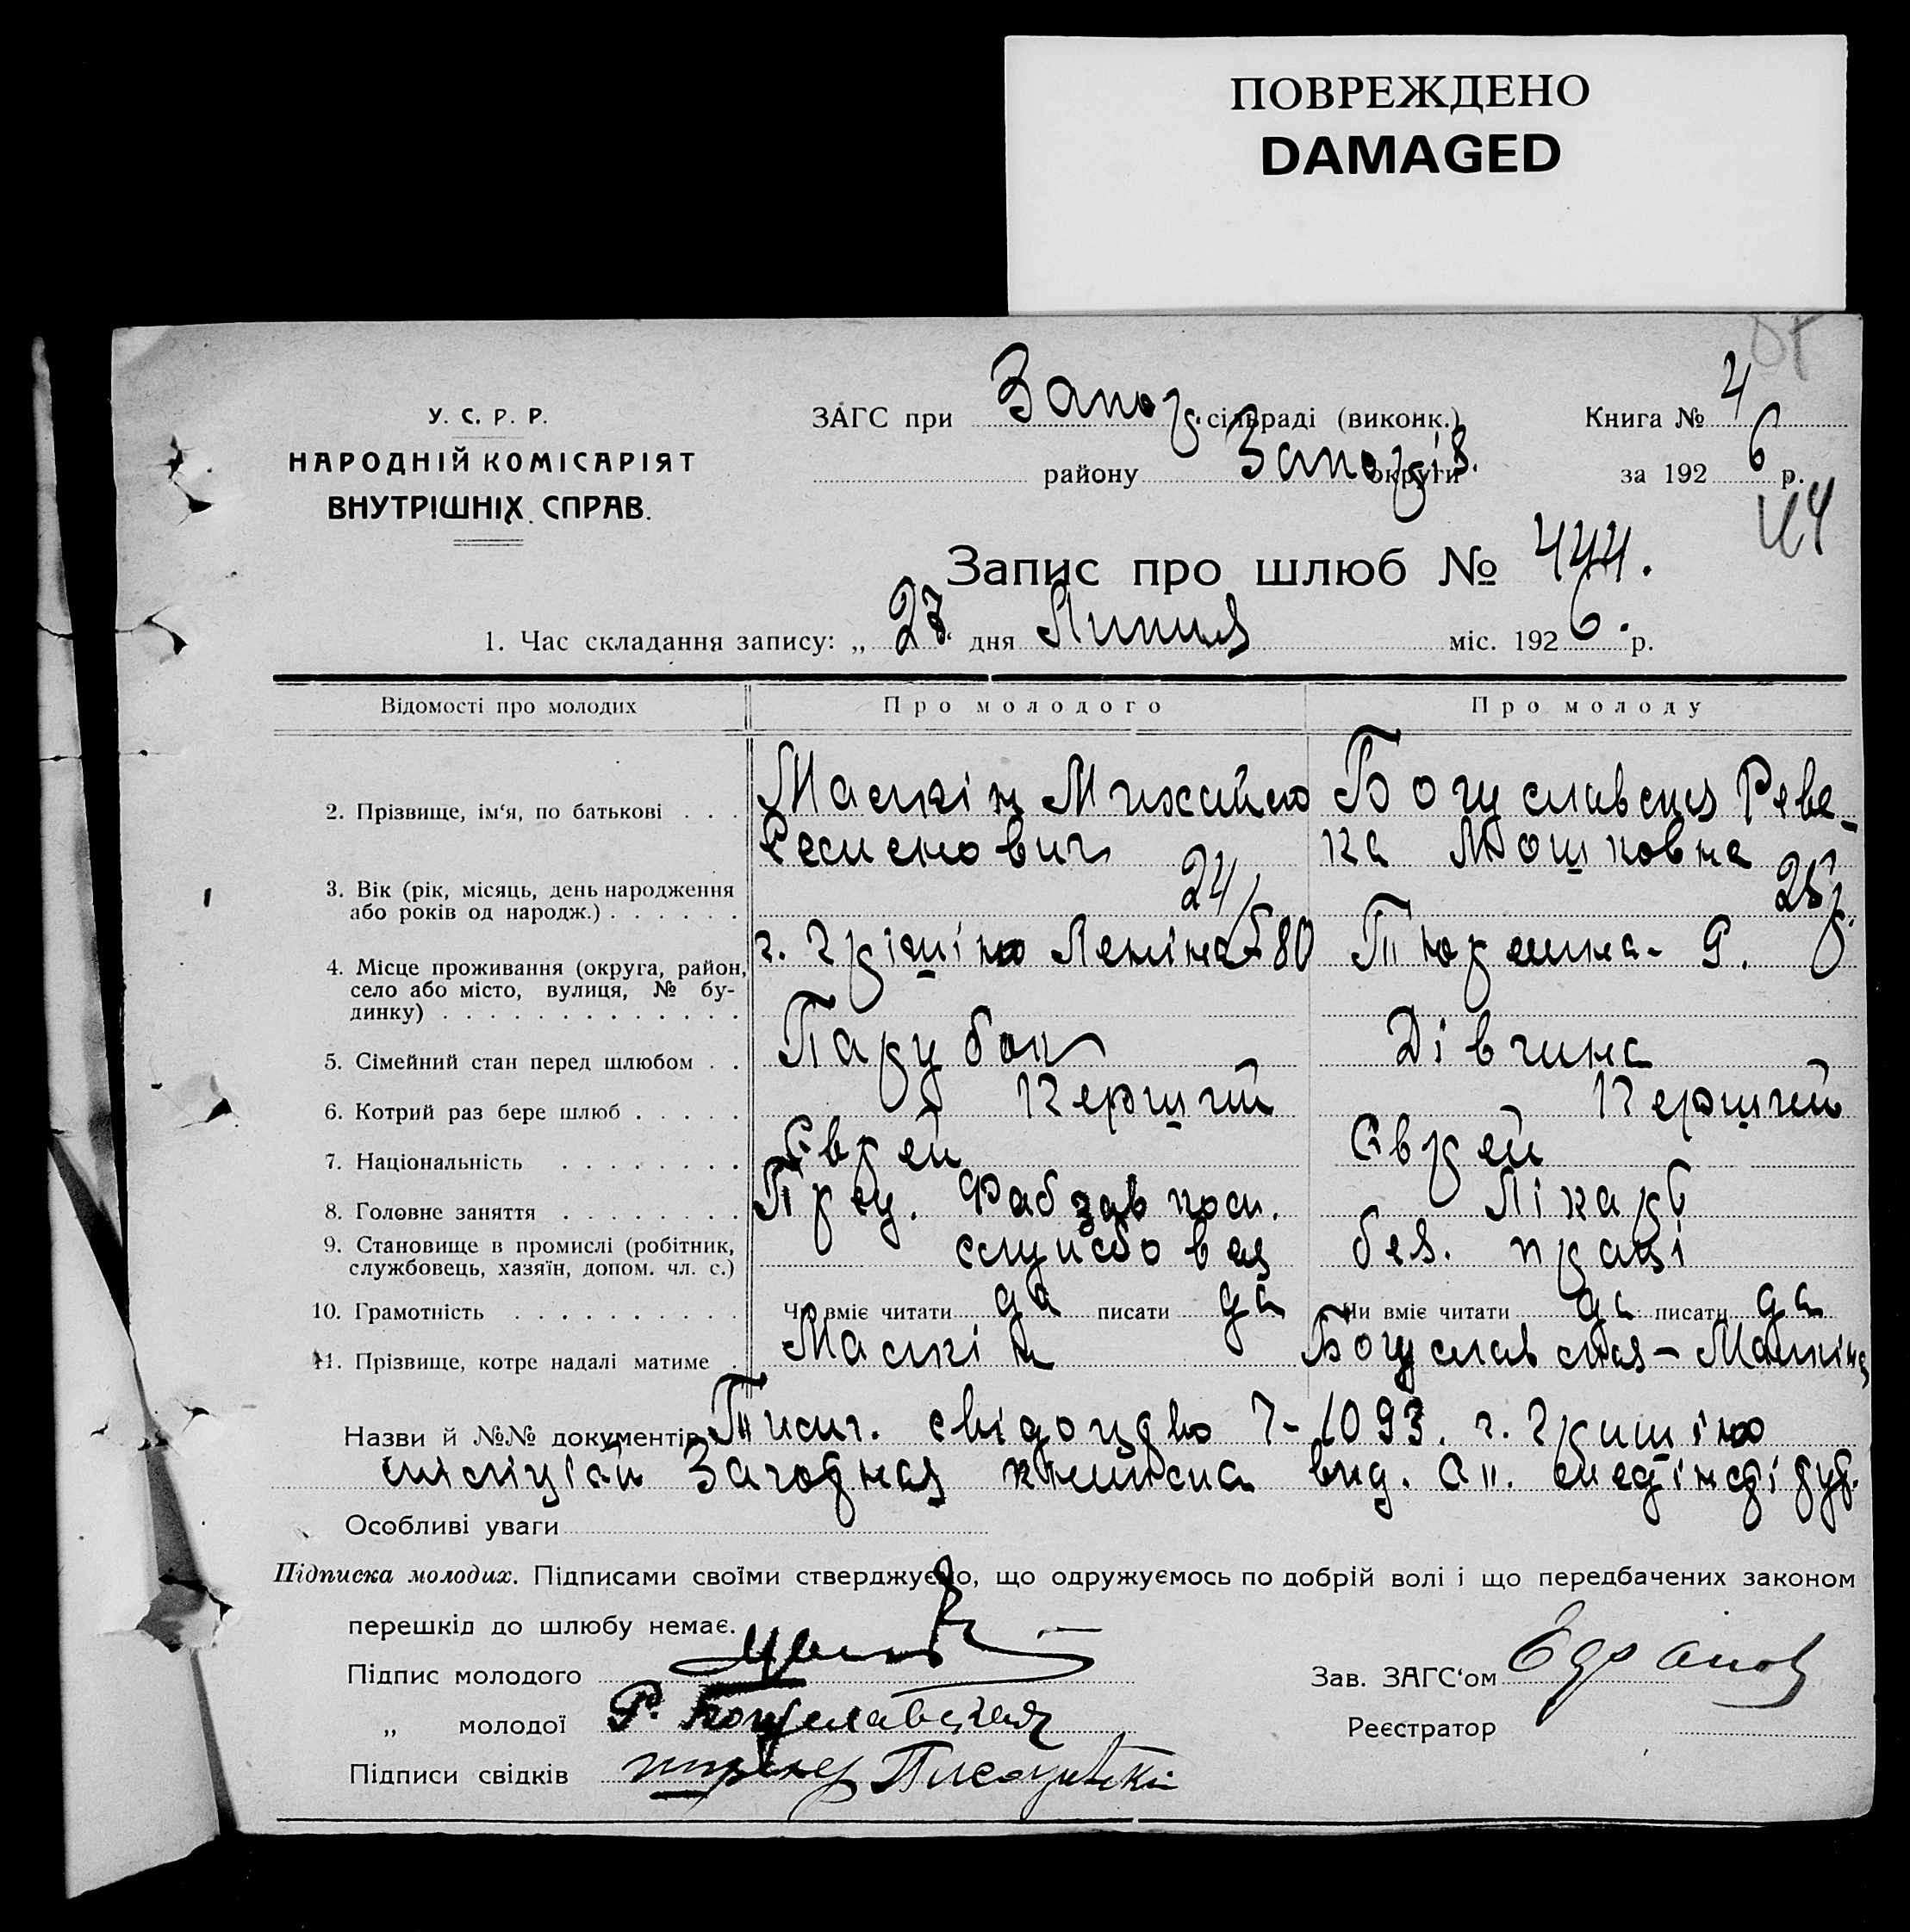 ПОВРЕЖДЕНО
DAMAGED
У. С. Р. Р.
НАРОДНІЙ КОМІСАРІЯТ
ВНУТРІШНІХ СПРАВ.
ЗАГС при Запор. сільраді (виконк.) Книга № 4
району Запоріз. округи за 1926 р.
44
Запис про шлюб № 444.
1. Час складання запису: „ 27 дня Липня міс. 1926 р.
Відомості про молодих Про молодого Про молоду
2. Прізвище, ім‘я, по батькові . . . Маскін Михайло Богуславская Реве-
ка Мошковна
3. Вік (рік, місяць, день народження 24 25 р.
або років од народж.) . . . . . .
4. Місце проживання (округа, район, г. Грішіно Леніна 80 Тюремна 9.
село або місто, вулиця, № бу-
динку) . . . . . . . . . . . . .
5. Сімейний стан перед шлюбом . . Парубок Дівчина
6. Котрий раз бере шлюб . . . . . Перший Перший
7. Національність . . . . . . . . Єврей Єврей
8. Головне заняття . . . . . . . . Пред. Фабзавком. Лікарь
9. Становище в промислі (робітник, службовец без. праці
службовець, хазяїн, допом. чл. с.)
10. Грамотність . . . . . . . . . . Чи вміє читати да писати да Чи вміє читати да писати да
11. Прізвище, котре надалі матиме . Маскін Богуславская-Маскіна
Назви й №№ документів Тисч. свідоцтво 7-1093. г. Гришіно
міліціей Зачотная книжка вид.
Особливі уваги
Підписка молодих. Підписами своїми стверджуємо, що одружуємось по добрій волі і що передбачених законом
перешкід до шлюбу немає.
Підпис молодого Зав. ЗАГС‘ом
„ молодої Р. Богуславская Реєстратор
Підписи свідків